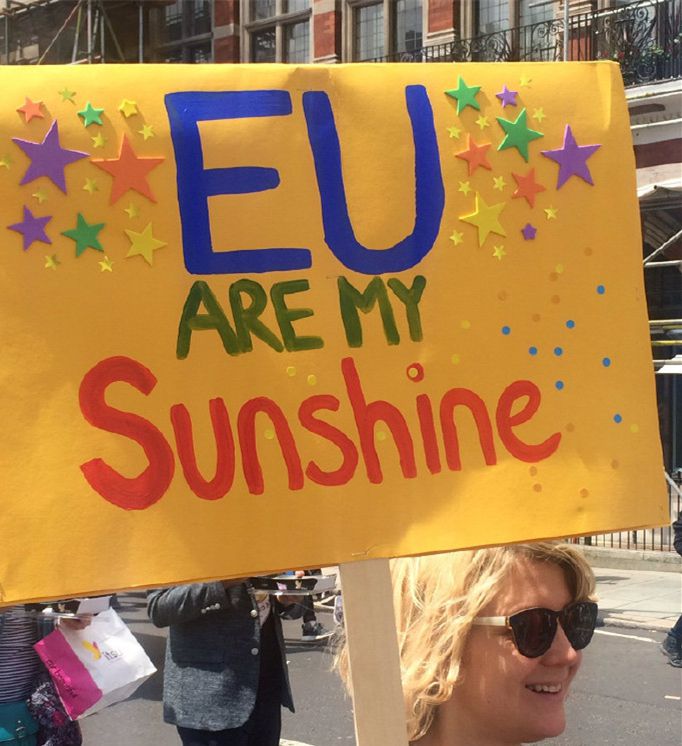 EU
ARE MY
Sunshine
itsu